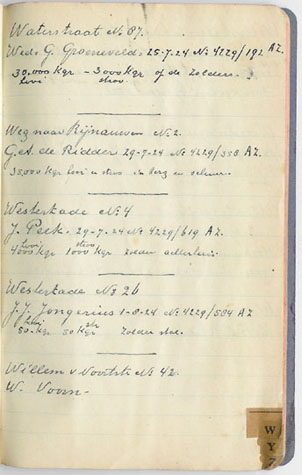 Waterstraat No 87.
Wed. G. Groeneveld 25-7-24 No 4229/192 AZ.
30.000 kgr - 3000 kgr of de Zolders.
hooi stroo
Weg naar Rijnauwen No 2.
G. A. de Ridder 29-7-24 No 4229/358 AZ.
35000 kgr hooi u stroo in berg en schuur.
Westerkade No 4
J. Peek. 29-7-24 No 4229/619 AZ
hooi stroo
4000 kgr 1000 kgr Zolder achterhuis.
Westerkade No 26
J. J. Jongerius 1-8-24 No 4229/584 AZ
hooi str
50 kgr 50 kgr Zolder stal.
Willem v Noortstr No 42.
W. Voorn-
W
Y
Z